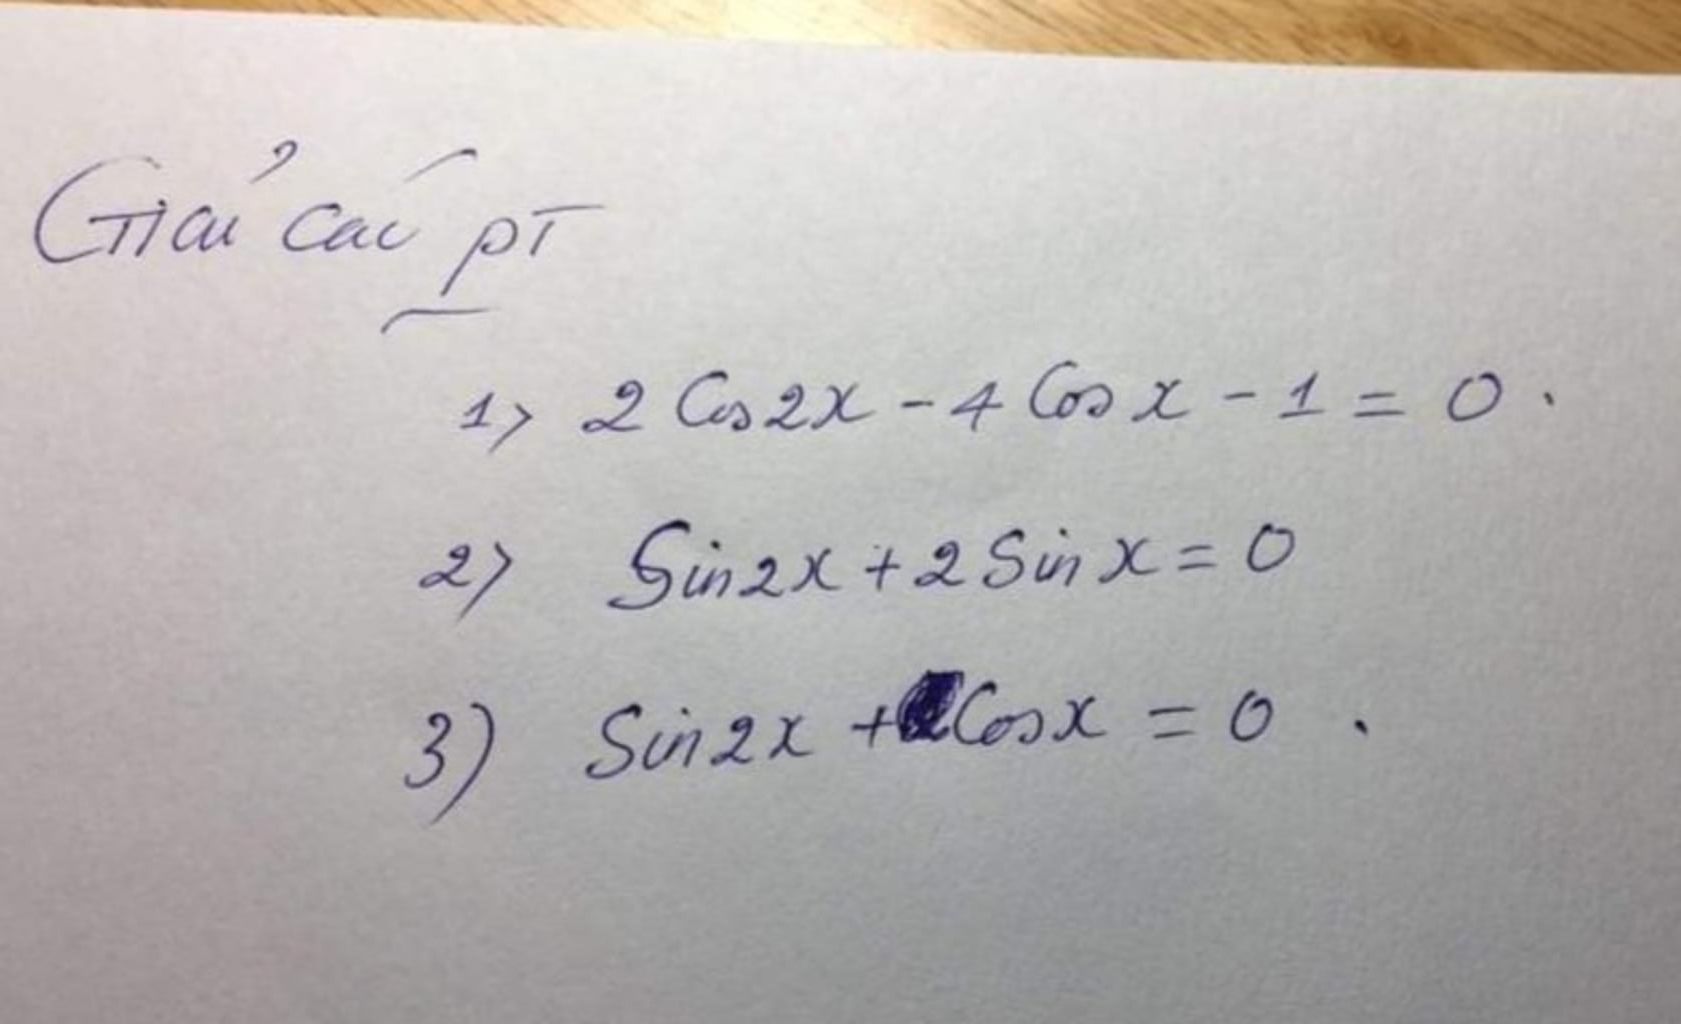 Giải các pT
1> 2 Cos2x - 4 Cos x - 1 = 0.
2> Sin2x + 2 Sin x = 0
3) Sin2x + Cosx = 0.